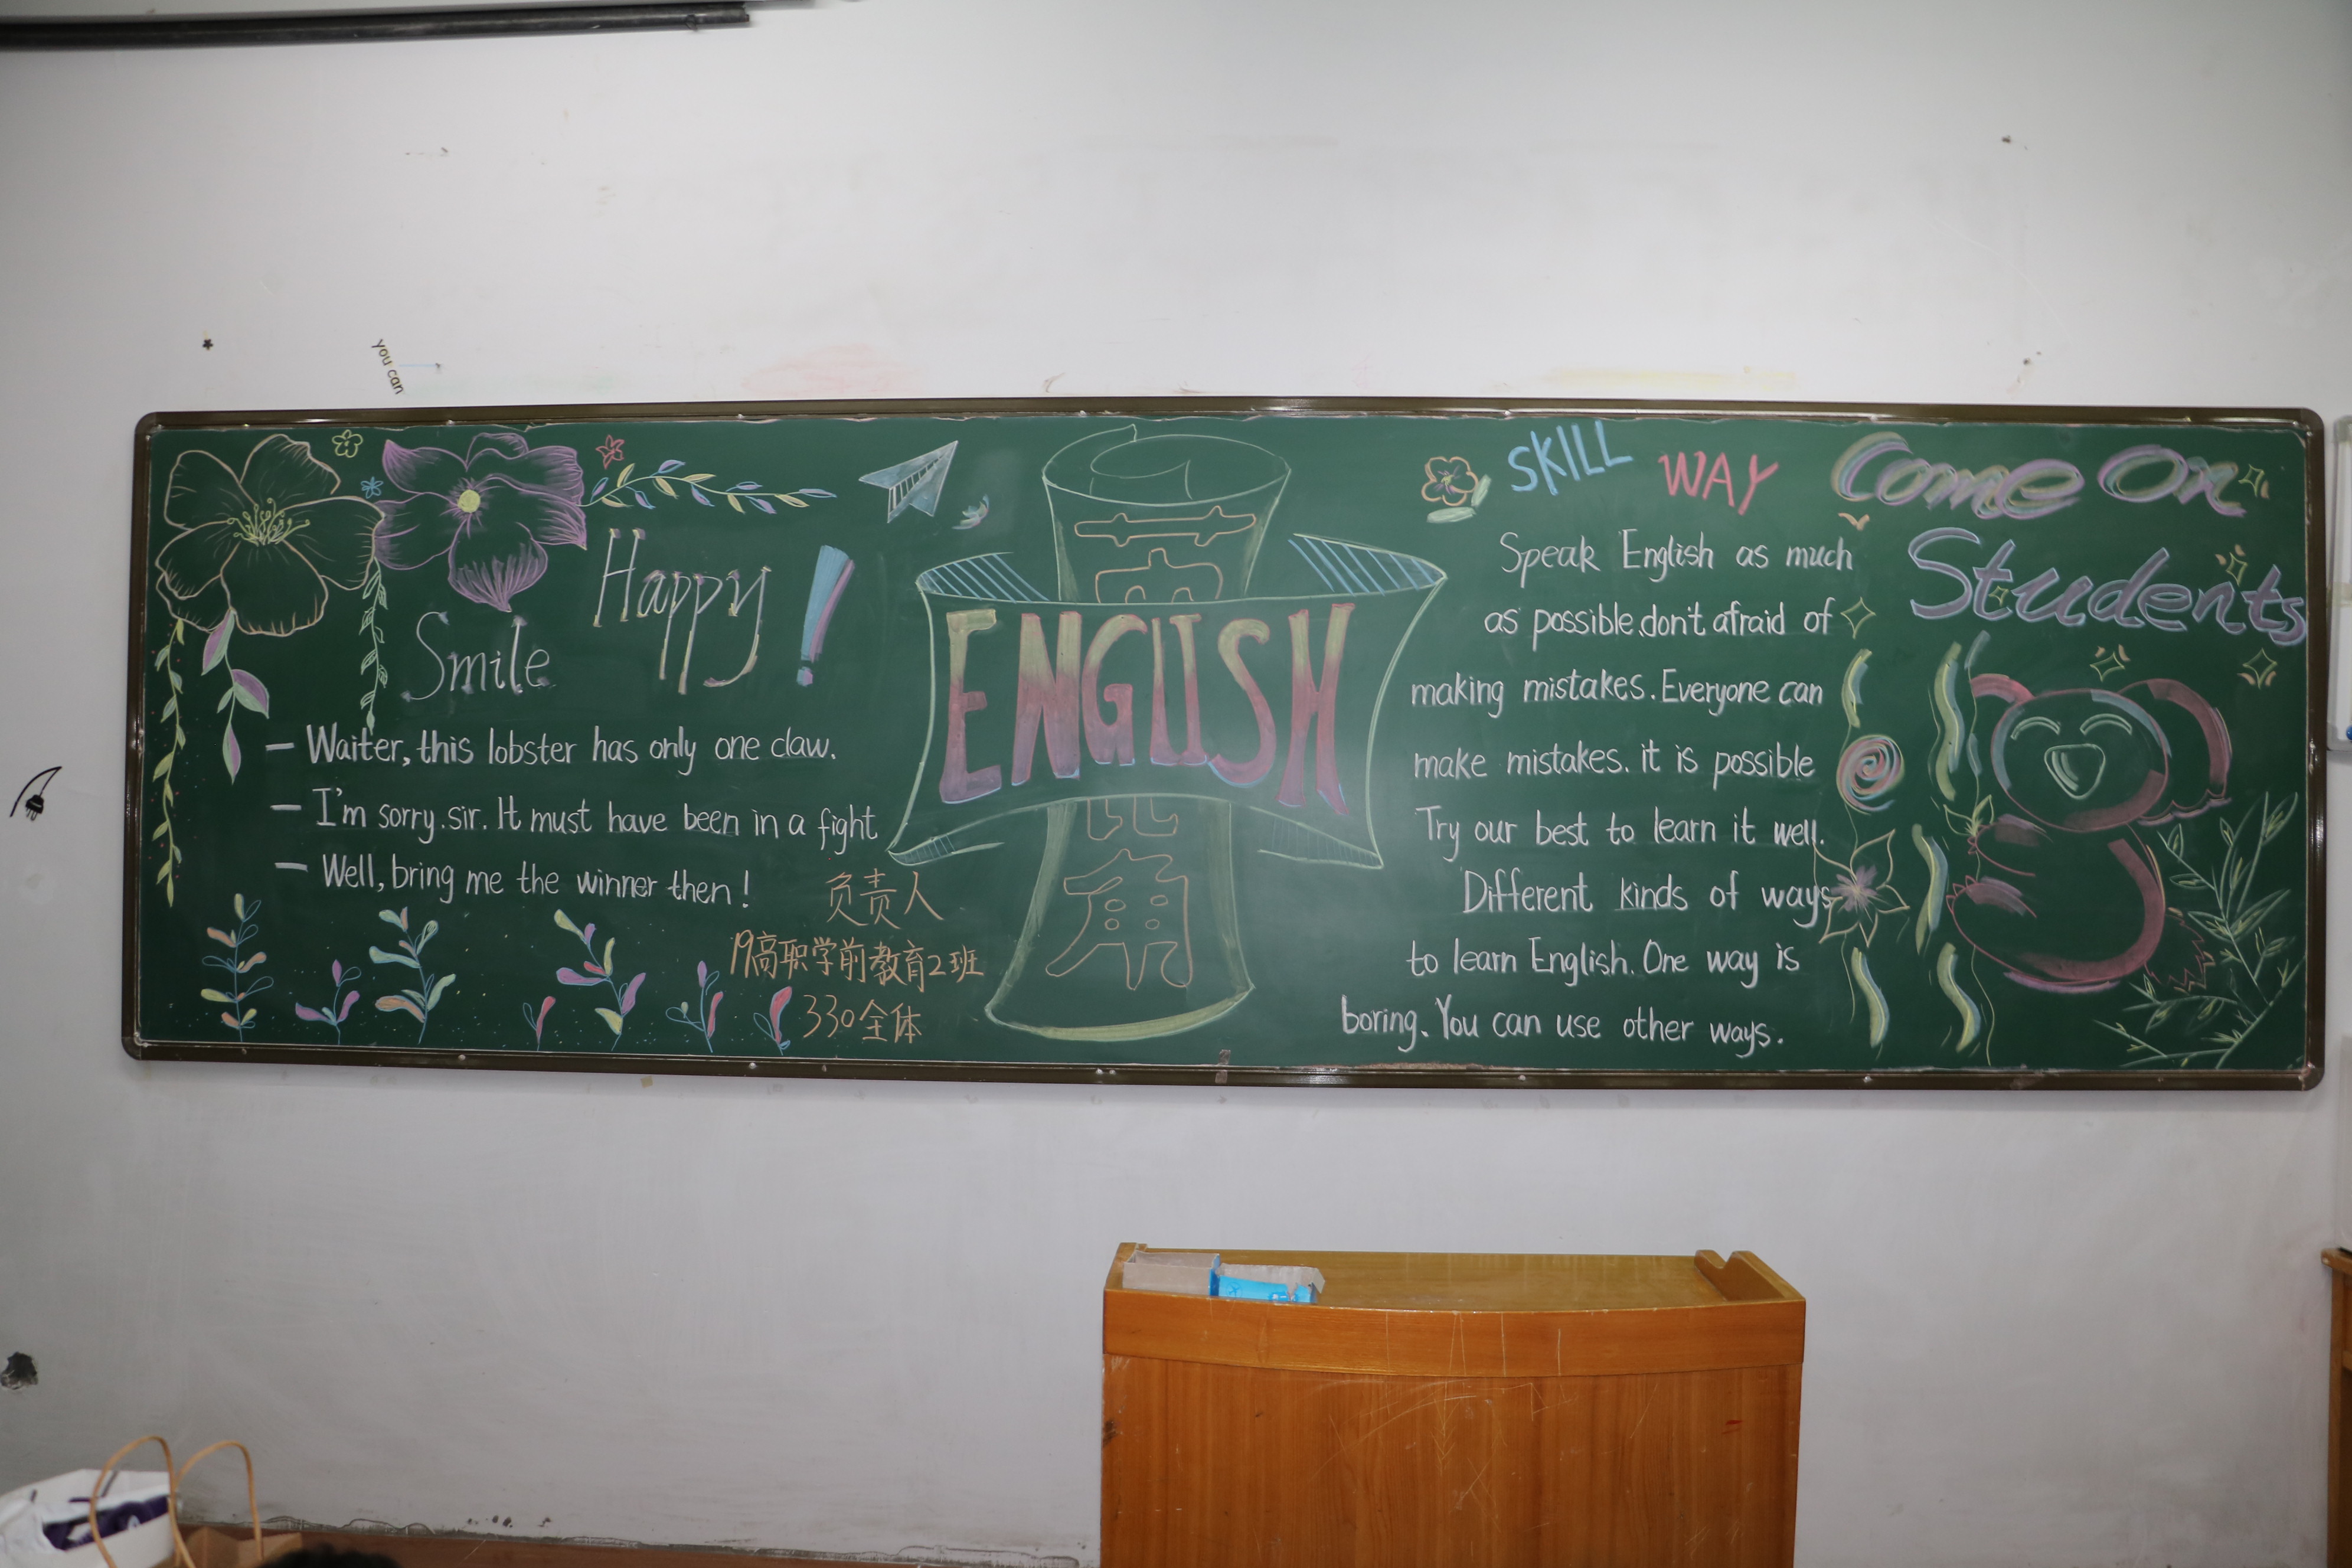 you can
Happy!
Smile
— Waiter, this lobster has only one claw.
— I'm sorry. sir. It must have been in a fight
— Well, bring me the winner then!
负责人
19高职学前教育2班
330全体
ENGLISH
角
SKILL WAY
Speak English as much
as possible.don't afraid of
making mistakes. Everyone can
make mistakes. it is possible
Try our best to learn it well.
Different kinds of ways
to learn English. One way is
boring. You can use other ways.
Come On
Students